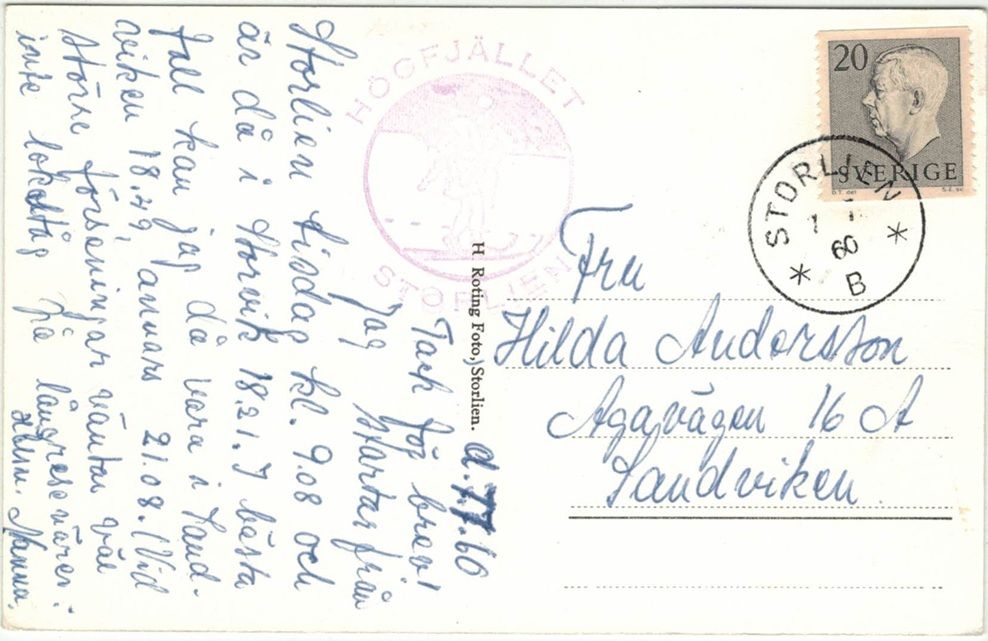 d. 7.7.60
Tack för brev!
Jag startar från
Storlien tisdag kl. 9.08 och
är då i Storvik 18.21. I bästa
fall kan jag då vara i Sand-
viken 18.49, annars 21.08. (Vid
större förseningar väntar väl
inte lokaltåg på långresenärer.
Nanna.
HÖGFJÄLLET
STORLIEN
H Roting Foto, Storlien.
20
SVERIGE
STORLIEN
60
B
Fru
Hilda Andersson
Agavägen 16 A
Sandviken.